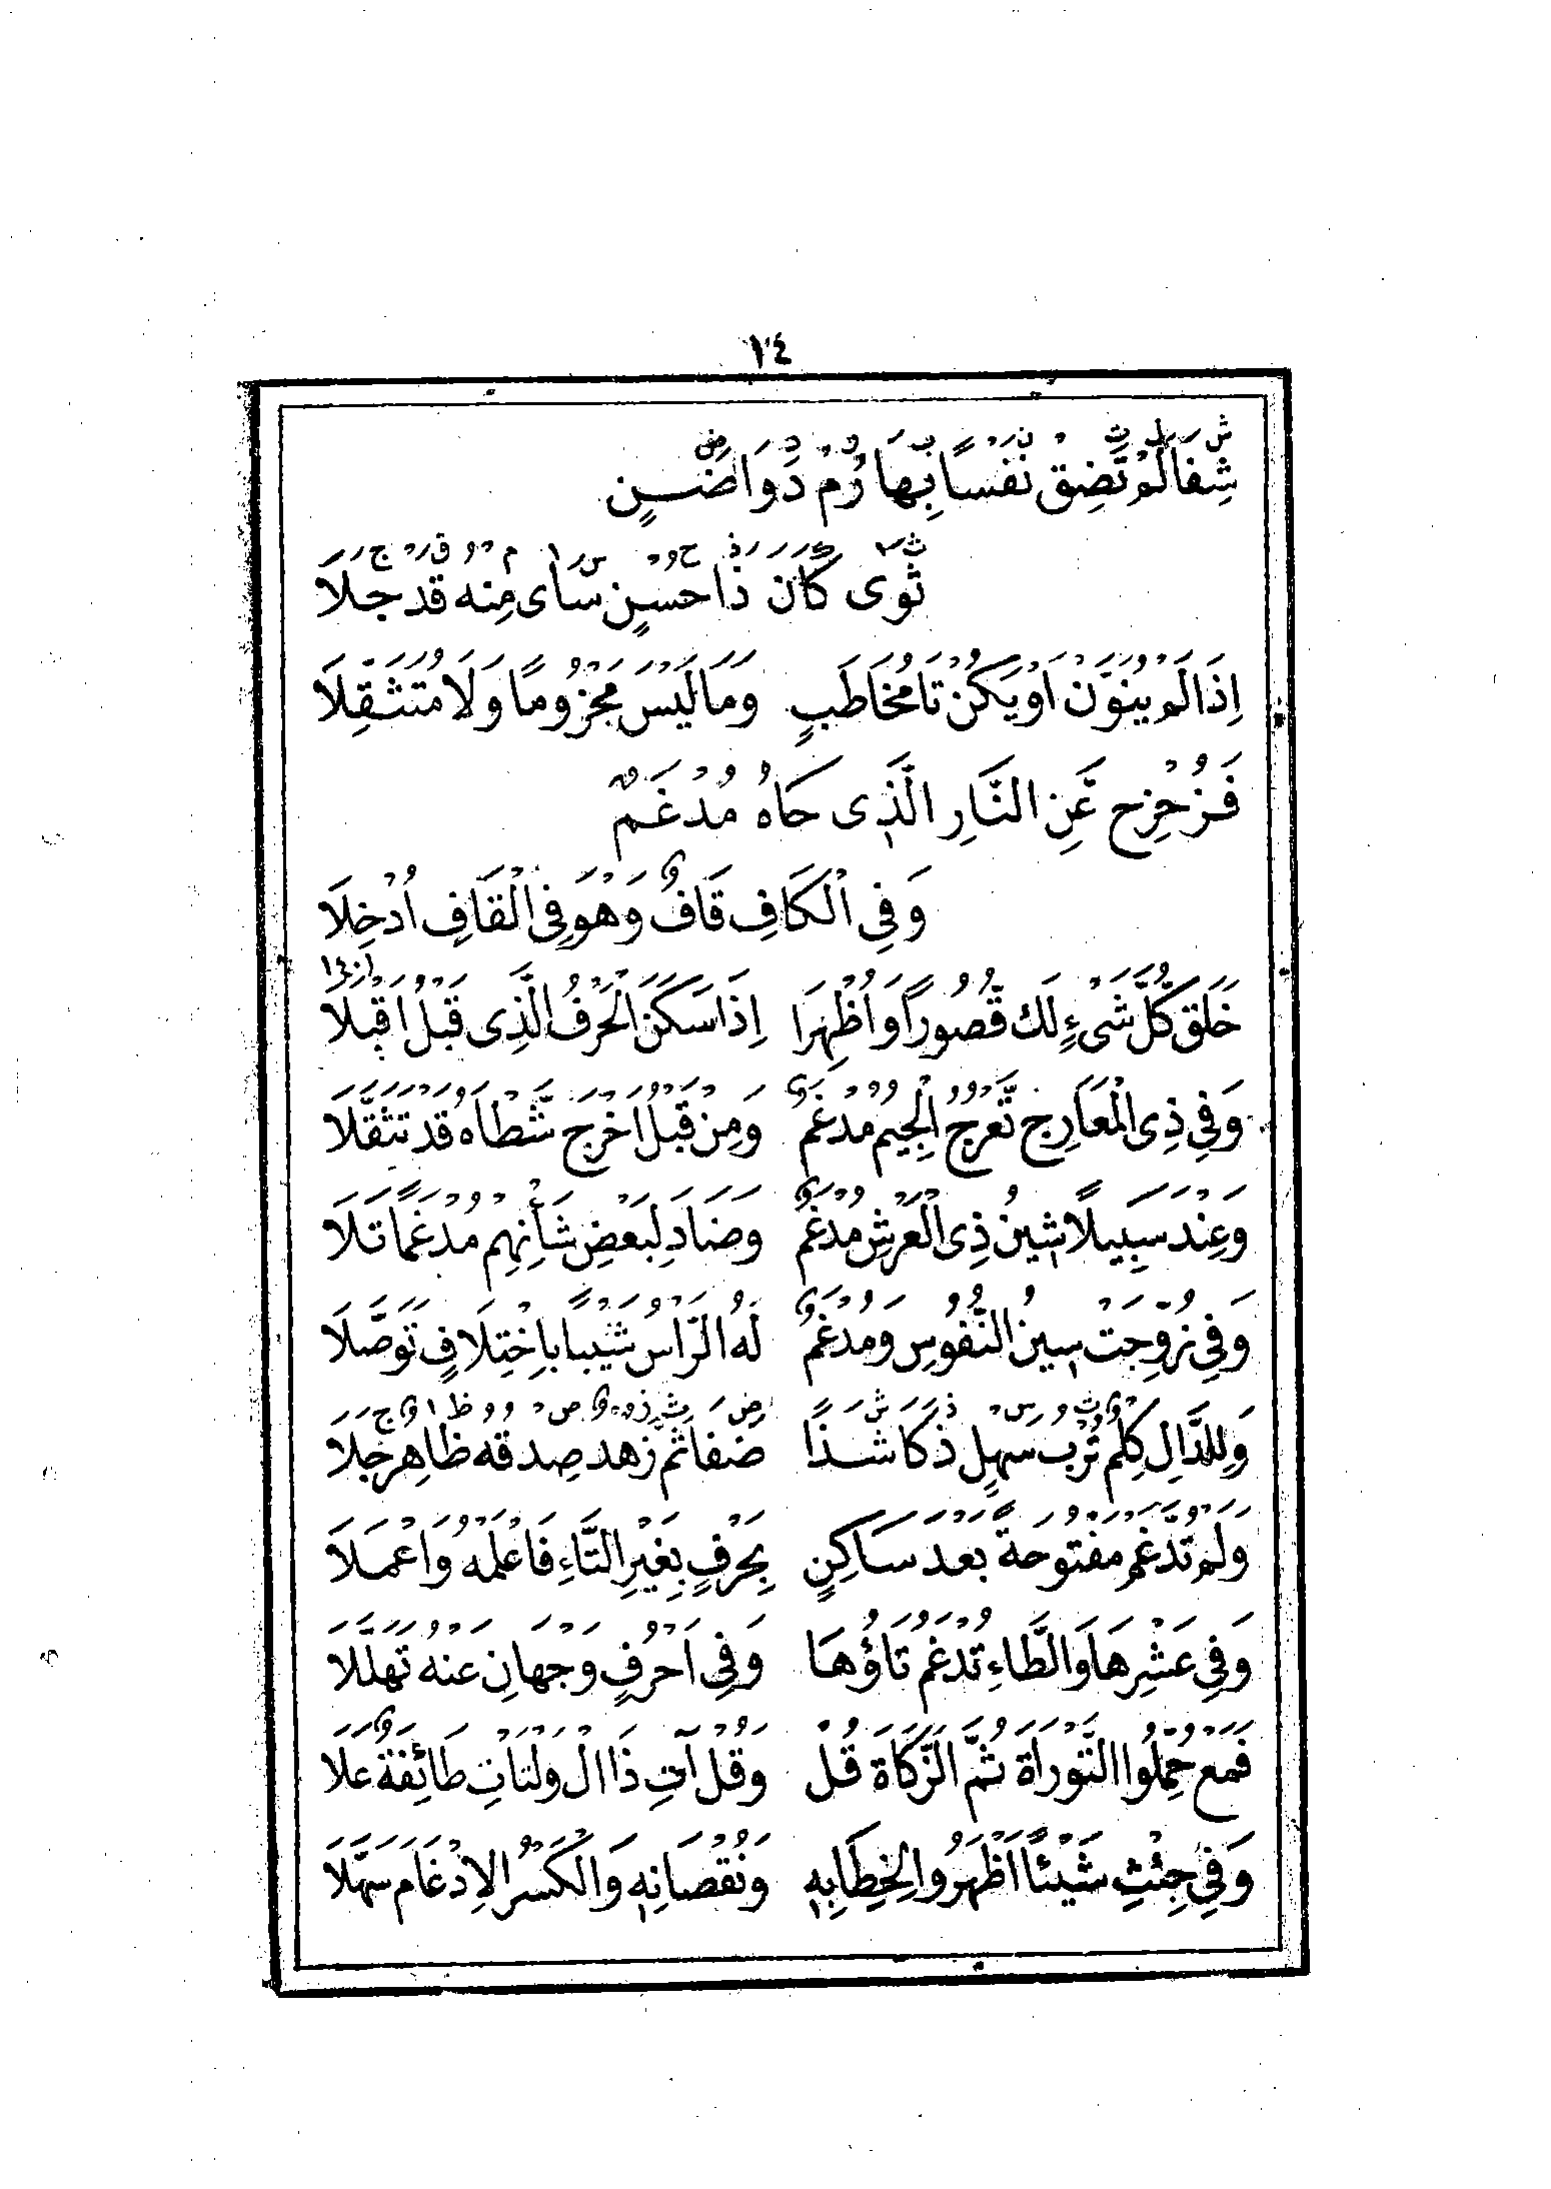 ١٤
شِفَا لَمْ تَضِقْ نَفْسًا بِهَا رُمْ دَوَا ضَنٍ
ثَوَى كَانَ ذَا حُسْنٍ سَأَى مِنْهُ قَدْ جَلَا
اِذَا لَمْ يُنَوَّنْ اَوْ يَكُنْ تَا مُخَاطَبٍ وَمَا لَيْسَ مَجْزُومًا وَلَا مُتَثَقِّلَا
فَزُحْزِحَ عَنِ النَّارِ الَّذِى حَاهُ مُدْغَمٌ
وَفِى الْكَافِ قَافٌ وَهْوَ فِى الْقَافِ اُدْخِلَا
خَلَقَ كُلَّ شَىْءٍ لَكَ قُّصُورًا وَاُظْهِرَا اِذَا سَكَنَ الْحَرْفُ الَّذِى قَبْلُ اَقْبَلَا
وَفِى ذِى الْمَعَارِجِ تَّعْرُجُ الْجِيمُ مُدْغَمٌ وَمِنْ قَبْلُ اَخْرَجَ شَّطْأَهُ قَدْ تَثَقَّلَا
وَعِنْدَ سَبِيلًا شِينُ ذِى الْعَرْشِ مُدْغَمٌ وَضَادَ لِبَعْضِ شَأْنِهِمْ مُدْغَمًا تَلَا
وَفِى زُوِّجَتْ سِينُ النُّفُوسِ وَمُدْغَمٌ لَهُ الرَّأْسُ شَيْبًا بِاخْتِلَافٍ تَوَصَّلَا
وَلِلدَّالِ كِلْمٌ تُرْبُ سَهْلٍ ذَكَا شَذًا ضَفَا ثَمَّ زُهْدٌ صِدْقُهُ ظَاهِرٌ جَلَا
وَلَمْ تُدَّغَمْ مَفْتُوحَةً بَعْدَ سَاكِنٍ بِحَرْفٍ بِغَيْرِ التَّاءِ فَاعْلَمْهُ وَاعْمَلَا
وَفِى عَشْرِهَا وَالطَّاءِ تُدْغَمُ تَاؤُهَا وَفِى اَحْرُفٍ وَجْهَانِ عَنْهُ تَهَلَّلَا
فَمَعْ حُمِّلُوا التَّوْرَاةَ ثُمَّ الزَّكَاةَ قُلْ وَقُلْ آتِ ذَا الْ وَلْتَأْتِ طَائِفَةٌ عَلَا
وَفِى جِئْتِ شَيْئًا اَظْهَرُوا لِخِطَابِهِ وَنُقْصَانِهِ وَالْكَسْرُ الاِدْغَامَ سَهَّلَا